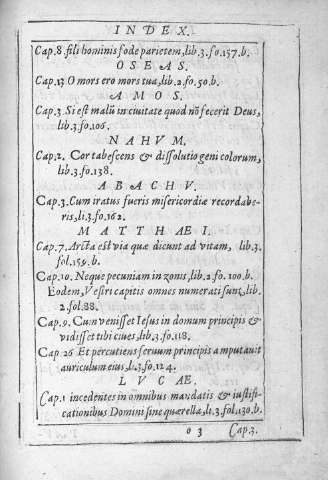 INDEX.
Cap.8 fili hominis fode parietem, lib.3.fo.157.b.
OSEAS.
Cap.13 O mors ero mors tua, lib.2.fo.50.b.
AMOS.
Cap.3 Si est malū in ciuitate quod nō fecerit Deus,
lib.3.fo.106.
NAHVM.
Cap.2. Cor tabescens & dissolutio geni colorum,
lib.3.fo.138.
ABACHV.
Cap.3. Cum iratus fueris misericordiæ recordabe-
ris, li.3.fo.162.
MATTHÆI.
Cap.7. Arcta est via quæ dicunt ad vitam, lib.3.
fol.159.b.
Cap.10. Neque pecuniam in zonis, lib.2.fo.100.b.
Eodem, Vestri capitis omnes numerati sunt, lib.
2.fol.88.
Cap.9. Cum venisset Iesus in domum principis &
vidisset tibi ciues, lib.3.fo.118.
Cap 26 Et percutiens seruum principis amputauit
auriculum eius, l.3.fo.124.
LVCAE,
Cap.1 incedentes in omnibus mandatis & iustifi-
cationibus Domini sine quærella, li.3.fol.130.b.
o 3 Cap.3.